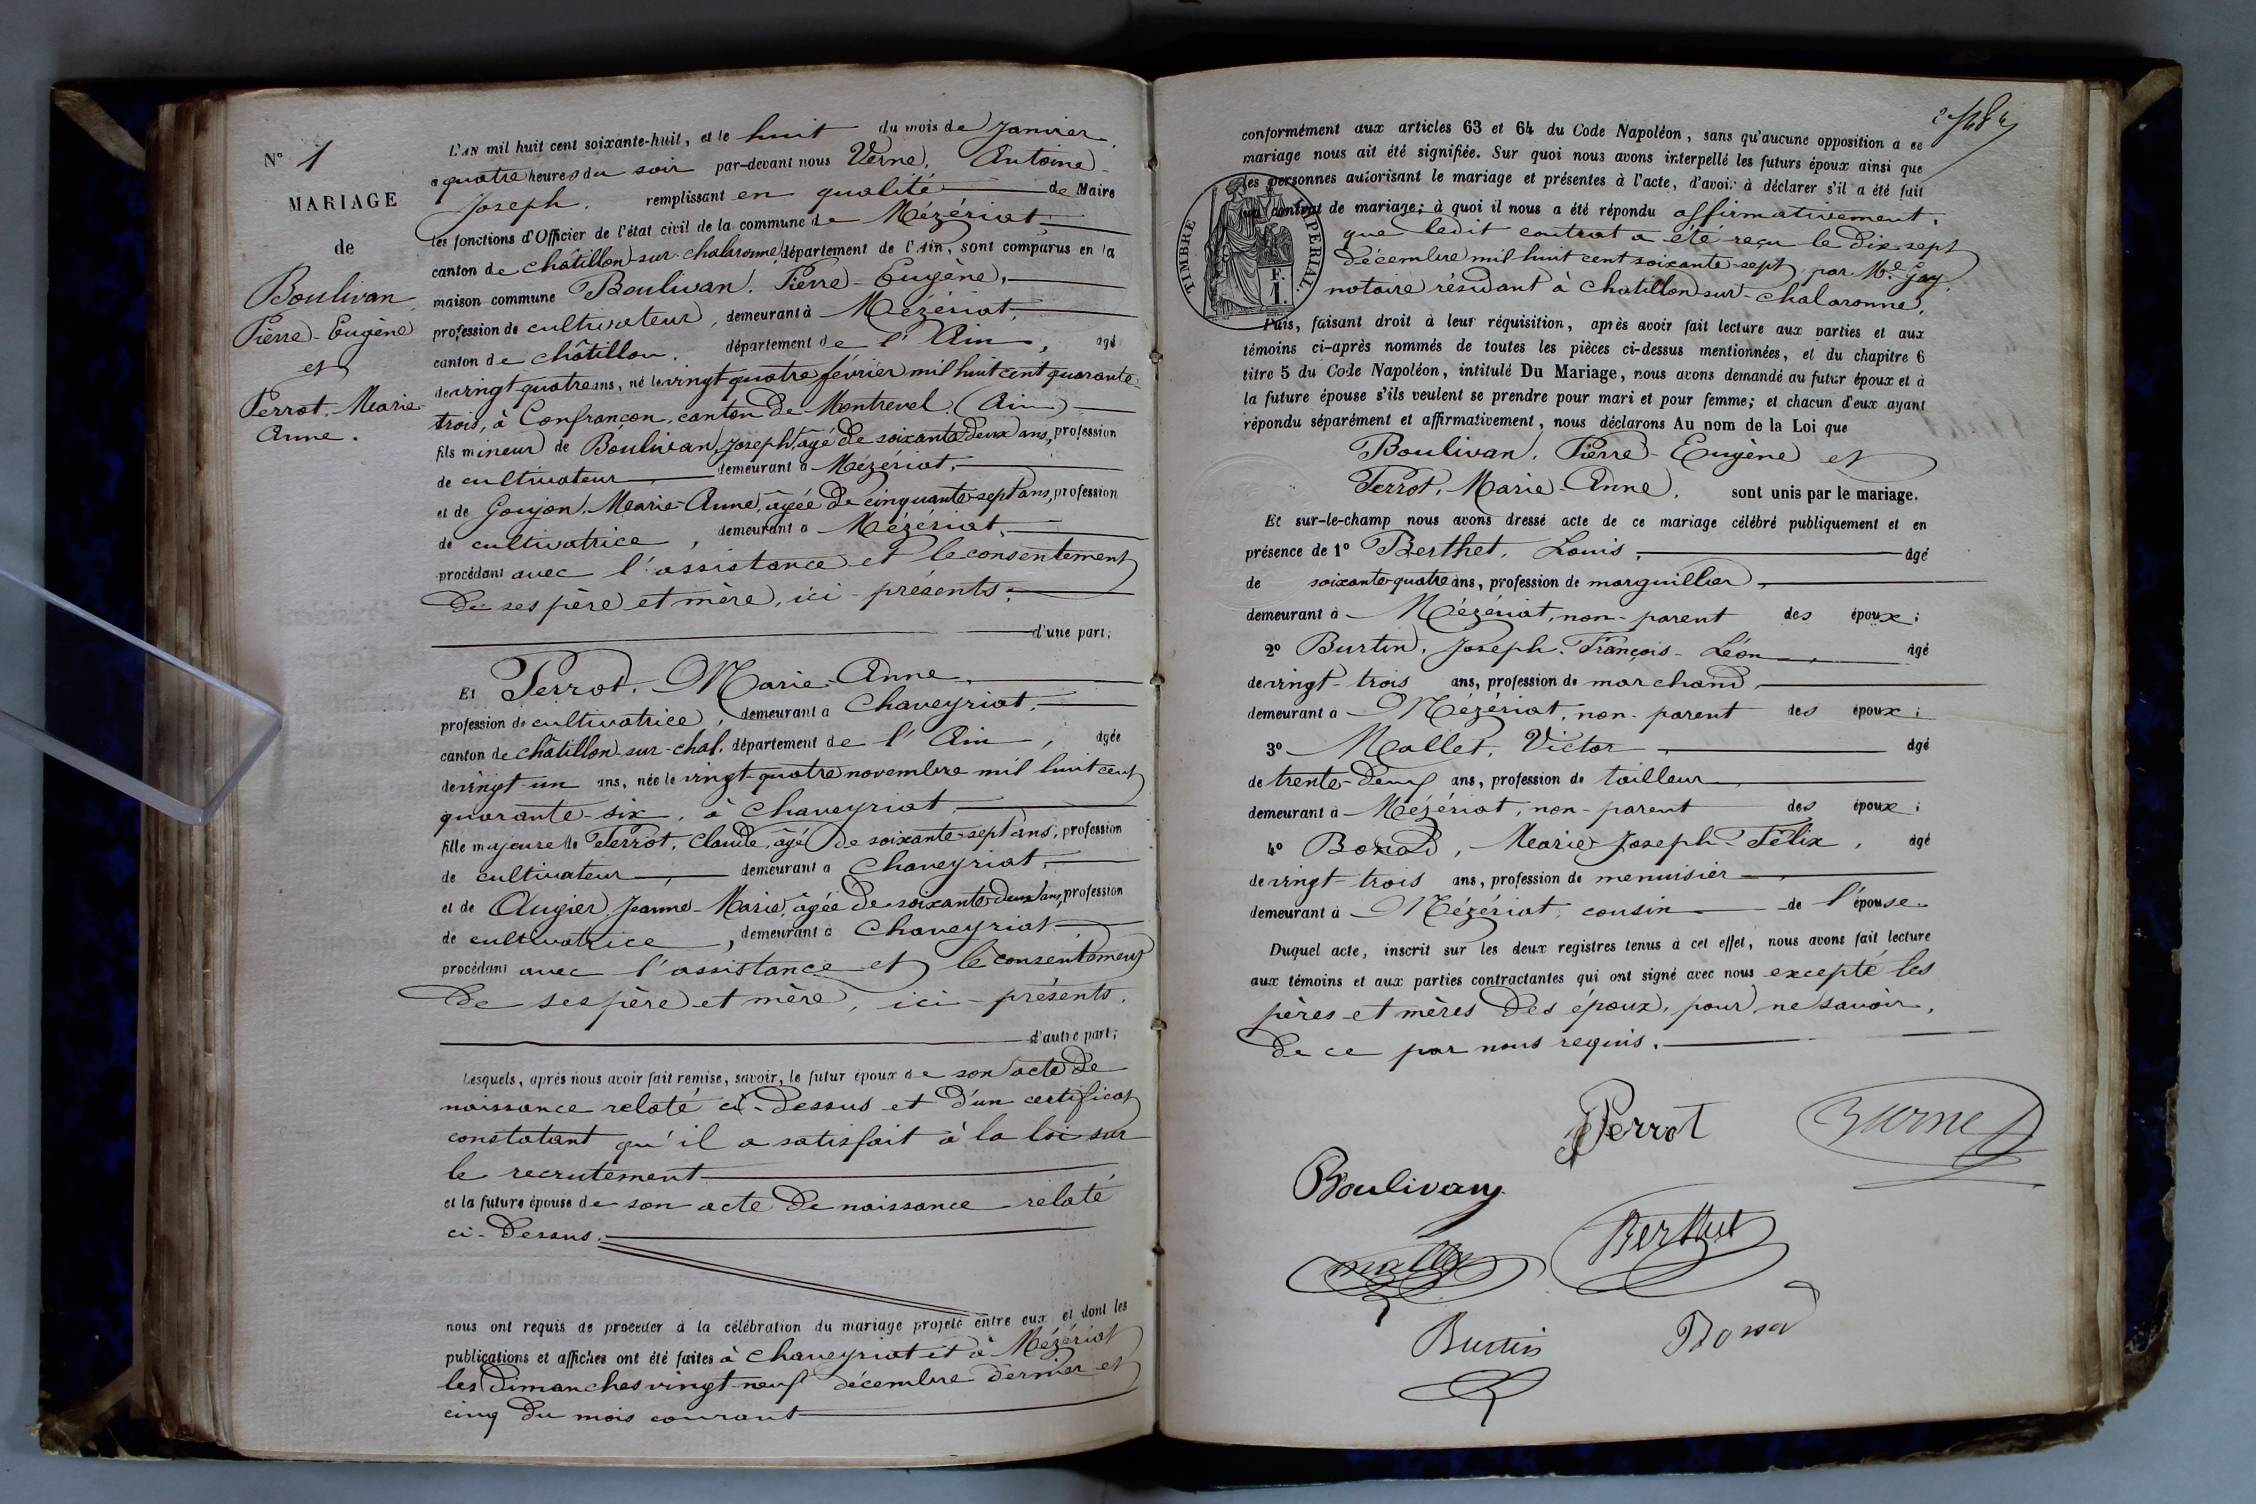 N° 1
MARIAGE
de
Boulivan,
Pierre-Eugène
et
Perrot, Marie
Anne.
L'AN mil huit cent soixante-huit, et le huit du mois de Janvier,
à quatre heures du soir par-devant nous Verne, Antoine-
Joseph, remplissant en qualité de Maire
les fonctions d'Officier de l'état civil de la commune de Mézériat,
canton de châtillon-sur-chalaronne, département de l'Ain, sont comparus en la
maison commune Boulivan, Pierre-Eugène,
profession de cultivateur, demeurant à Mézériat,
canton de châtillon, département de l'Ain, âgé
de vingt quatre ans, né le vingt quatre février mil huit cent quarante-
trois, à Confrançon, canton de Montrevel (Ain)
fils mineur de Boulivan, Joseph, âgé de soixante-deux ans, profession
de cultivateur, demeurant à Mézériat,
et de Goujon, Marie-Anne, âgée de cinquante-sept ans, profession
de cultivatrice, demeurant à Mézériat,
procédant avec l'assistance et le consentement
de ses père et mère, ici-présents,
d'une part;
Et Perrot, Marie-Anne,
profession de cultivatrice, demeurant à Chaveyriat,
canton de châtillon-sur-chal. département de l'Ain, âgée
de vingt-un ans, née le vingt-quatre novembre mil huit cent
quarante-six, à Chaveyriat
fille majeure de Perrot, Claude, âgé de soixante-sept ans, profession
de cultivateur, demeurant à Chaveyriat,
et de Augier, Jeanne-Marie, âgée de soixante-deux ans, profession
de cultivatrice, demeurant à Chaveyriat
procédant avec l'assistance et le consentement
de ses père et mère, ici-présents.
d'autre part;
Lesquels, après nous avoir fait remise, savoir, le futur époux de son acte de
naissance relaté ci-dessus et d'un certificat
constatant qu'il a satisfait à la loi sur
le recrutement
et la future épouse de son acte de naissance relaté
ci-dessus.
nous ont requis de procéder à la célébration du mariage projeté entre eux et dont les
publications et affiches ont été faites à chaveyriat et à Mézériat
les dimanches vingt-neuf décembre dernier et
cinq du mois courant
conformément aux articles 63 et 64 du Code Napoléon, sans qu'aucune opposition à ce
mariage nous ait été signifiée. Sur quoi nous avons interpellé les futurs époux ainsi que
les personnes autorisant le mariage et présentes à l'acte, d'avoir à déclarer s'il a été fait
un contrat de mariage; à quoi il nous a été répondu affirmativement,
que ledit contrat a été reçu le dix-sept
décembre mil huit cent soixante-sept, par Me Gay,
notaire résidant à Chatillon-sur-chalaronne,
TIMBRE IMPERIAL.
F.
1.
Puis, faisant droit à leur réquisition, après avoir fait lecture aux parties et aux
témoins ci-après nommés de toutes les pièces ci-dessus mentionnées, et du chapitre 6
titre 5 du Code Napoléon, intitulé Du Mariage, nous avons demandé au futur époux et à
la future épouse s'ils veulent se prendre pour mari et pour femme; et chacun d'eux ayant
répondu séparément et affirmativement, nous déclarons Au nom de la Loi que
Boulivan, Pierre-Eugène et
Perrot, Marie-Anne, sont unis par le mariage.
Et sur-le-champ nous avons dressé acte de ce mariage célébré publiquement et en
présence de 1° Berthet, Louis, âgé
de soixante-quatre ans, profession de marguillier,
demeurant à Mézériat, non-parent des époux;
2° Burtin, Joseph-François-Léon, âgé
de vingt-trois ans, profession de marchand,
demeurant à Mézériat, non-parent des époux;
3° Mallet, Victor, âgé
de trente-deux ans, profession de tailleur
demeurant à Mézériat, non-parent des époux;
4° Bonad, Marie-Joseph-Félix, âgé
de vingt-trois ans, profession de menuisier,
demeurant à Mézériat, cousin de l'épouse.
Duquel acte, inscrit sur les deux registres tenus à cet effet, nous avons fait lecture
aux témoins et aux parties contractantes qui ont signé avec nous excepté les
pères et mères des époux, pour ne savoir,
de ce par nous requis.
Perrot
Verne
Boulivan
Mallet
Berthet
Burtin